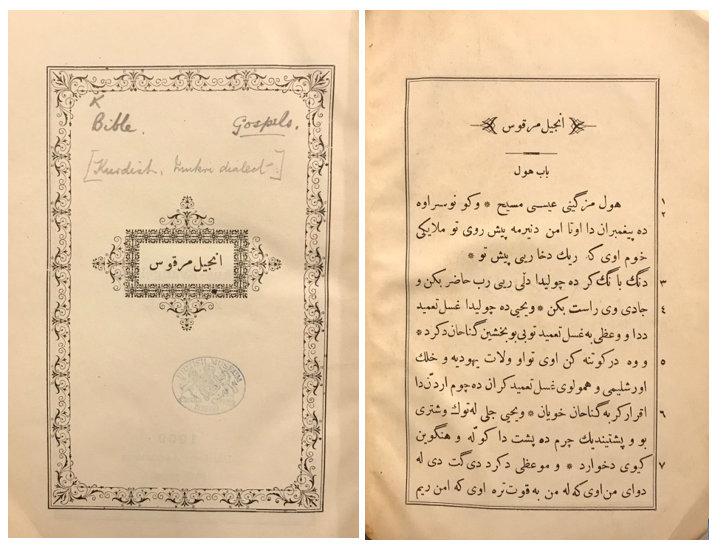 K
Bible.
Gospels.
[Kurdish, Mukri dialect.]
انجیل مرقوس
BRITISH MUSEUM
انجیل مرقوس
باب هول
۱ هول مزگینی عیسی مسیح * وکو نوسراوه
۲ ده پیغمبران دا اوتا امن دنیرمه پیش روی تو ملایکی
خوم اوی که ریك دخا ریی پیش تو *
۳ دنگ بانگ کر ده چولیدا دلّی ریی رب حاضر بکن و
۴ جادی وی راست بکن * ویحیی ده چولیدا غسل تعمید
ددا و وعظی به غسل تعمید توبی بو بخشین گناحان دکرد *
۵ و وه درکوتنه کن اوی تواو ولات یهودیه و خلك
اورشلیمی و همو لوی غسل تعمید کران ده چوم اردن دا
۶ اقرار کر به گناحان خویان * ویحیی جلی له توك وشتری
بو و پشتیندیك چرم ده پشت دا کو له و هنگوین
۷ کیوی دخوارد * و موعظی دکرد دی گت دی له
دوای من اوی که له من به قوت تره اوی که امن ریم